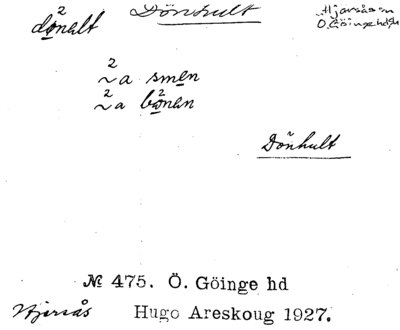 dönalt Dönhult Hjärsås sn
Ö. Göinge hd
~a smen
~a bönen
Dönhult
№ 475. Ö. Göinge hd
Hjärsås Hugo Areskoug 1927.